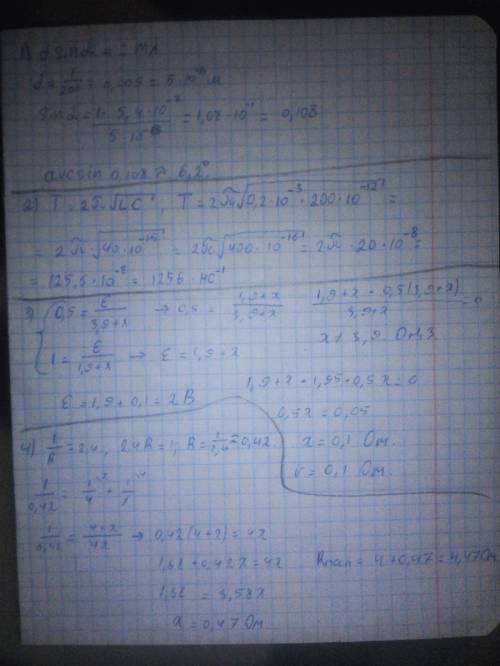 1) d sin α = ± mλ
d = 1/200 = 0,005 = 5·10⁻⁶ м
sin α = 1·5,4·10⁻⁷ / 5·10⁻⁶ = 1,08·10⁻¹ = 0,108
arcsin 0,108 ≈ 6,2°
2) T = 2π√LC, T = 2π√0,2·10⁻³·200·10⁻¹² =
= 2π·√40·10⁻¹⁵ = 2π√400·10⁻¹⁶ = 2π·20·10⁻⁸ =
= 125,6·10⁻⁸ = 1256·10⁻⁹
3) 0,5 = ε/3,9+x → 0,5 = 1,9+x / 3,9+x
1,9+x - 0,5(3,9+x) / 3,9+x = 0
1 = ε/1,9+x → ε = 1,9+x
x ≠ 3,9 ОДЗ
1,9+x - 1,95-0,5x = 0
ε = 1,9+0,1 = 2 В
0,5x = 0,05
x = 0,1 Ом.
r = 0,1 Ом.
4) 1/R = 2,4, 2,4R = 1, R = 1/2,4 = 0,42
1/0,42 = 1/4 + 1/x
1/0,42 = 4+x/4x → 0,42(4+x) = 4x
1,68 + 0,42x = 4x
Rпосл = 4+0,47 = 4,47 Ом
1,68 = 3,58x
x = 0,47 Ом